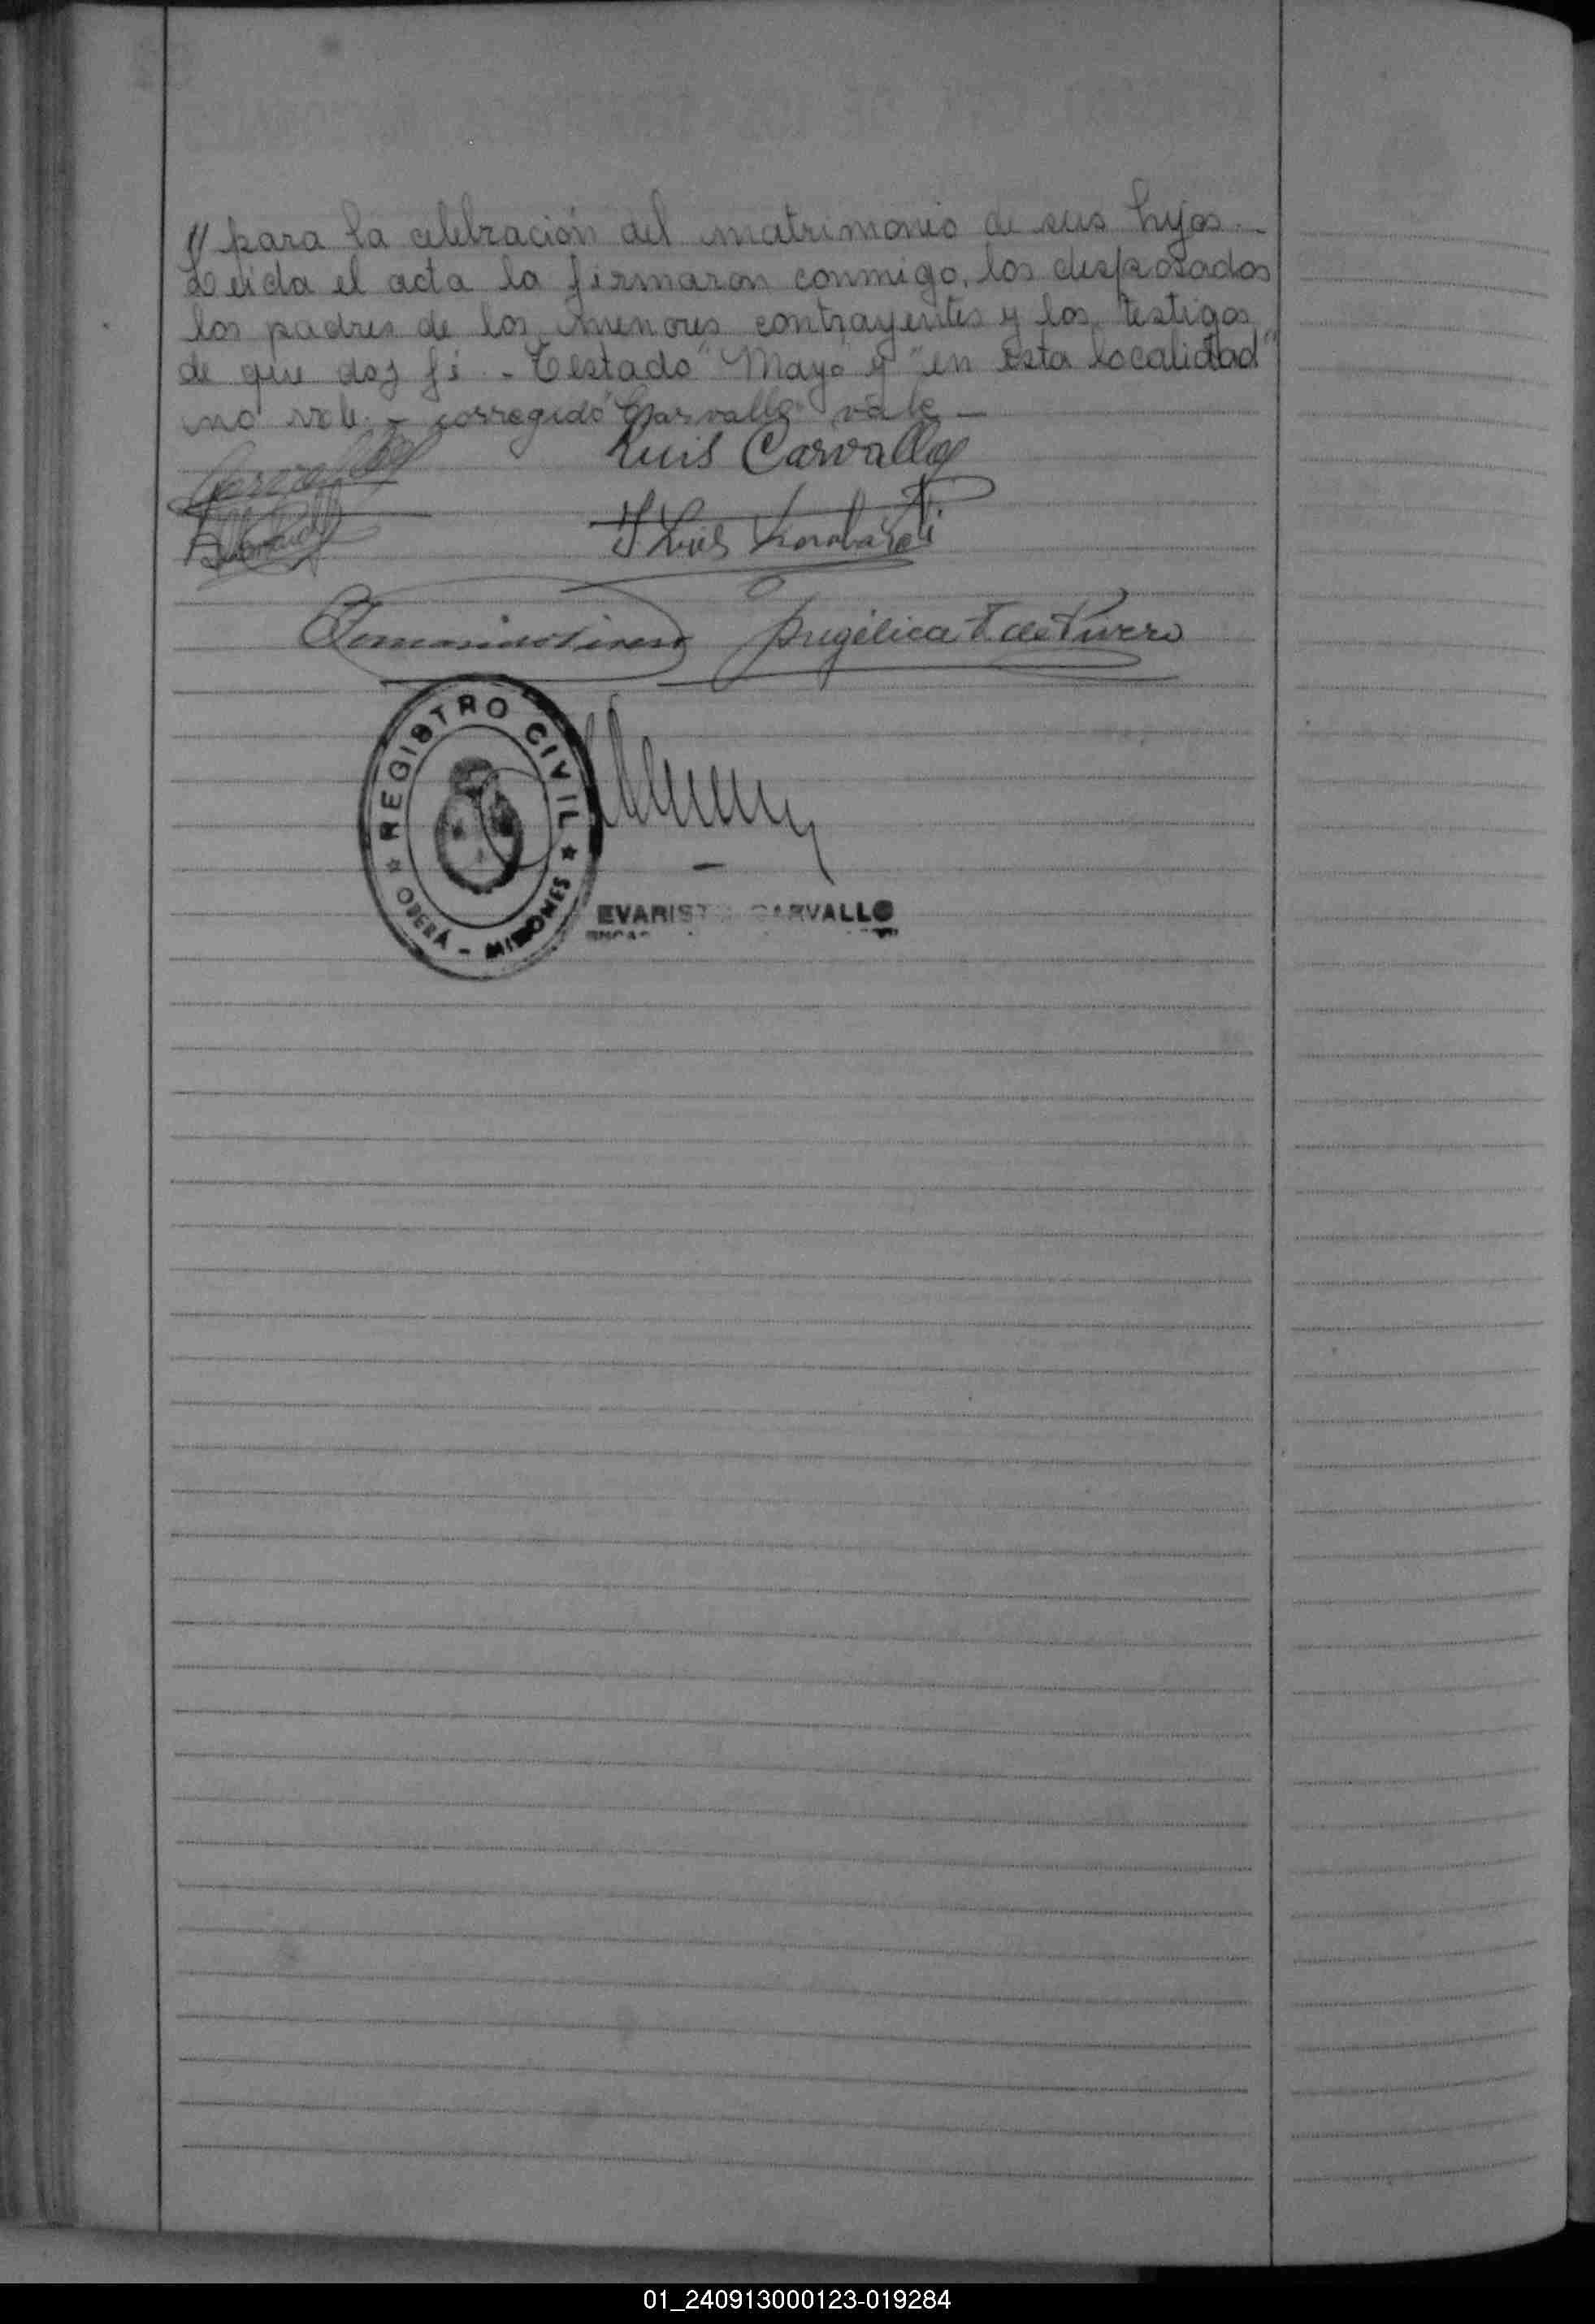 // para la celebración del matrimonio de sus hijos.-
Leida el acta la firmaron conmigo, los desposados
los padres de los menores contrayentes y los testigos
de que doy fé.- Testado "Mayo" y "en esta localidad"
no vale.- corregido "Carvallo" vale.-
Carvallo
Luis Carvallo
Luis Lombardi
Angélica T. de Rivero
REGISTRO CIVIL
OBERÁ - MISIONES
EVARISTO CARVALLO
01_240913000123-019284